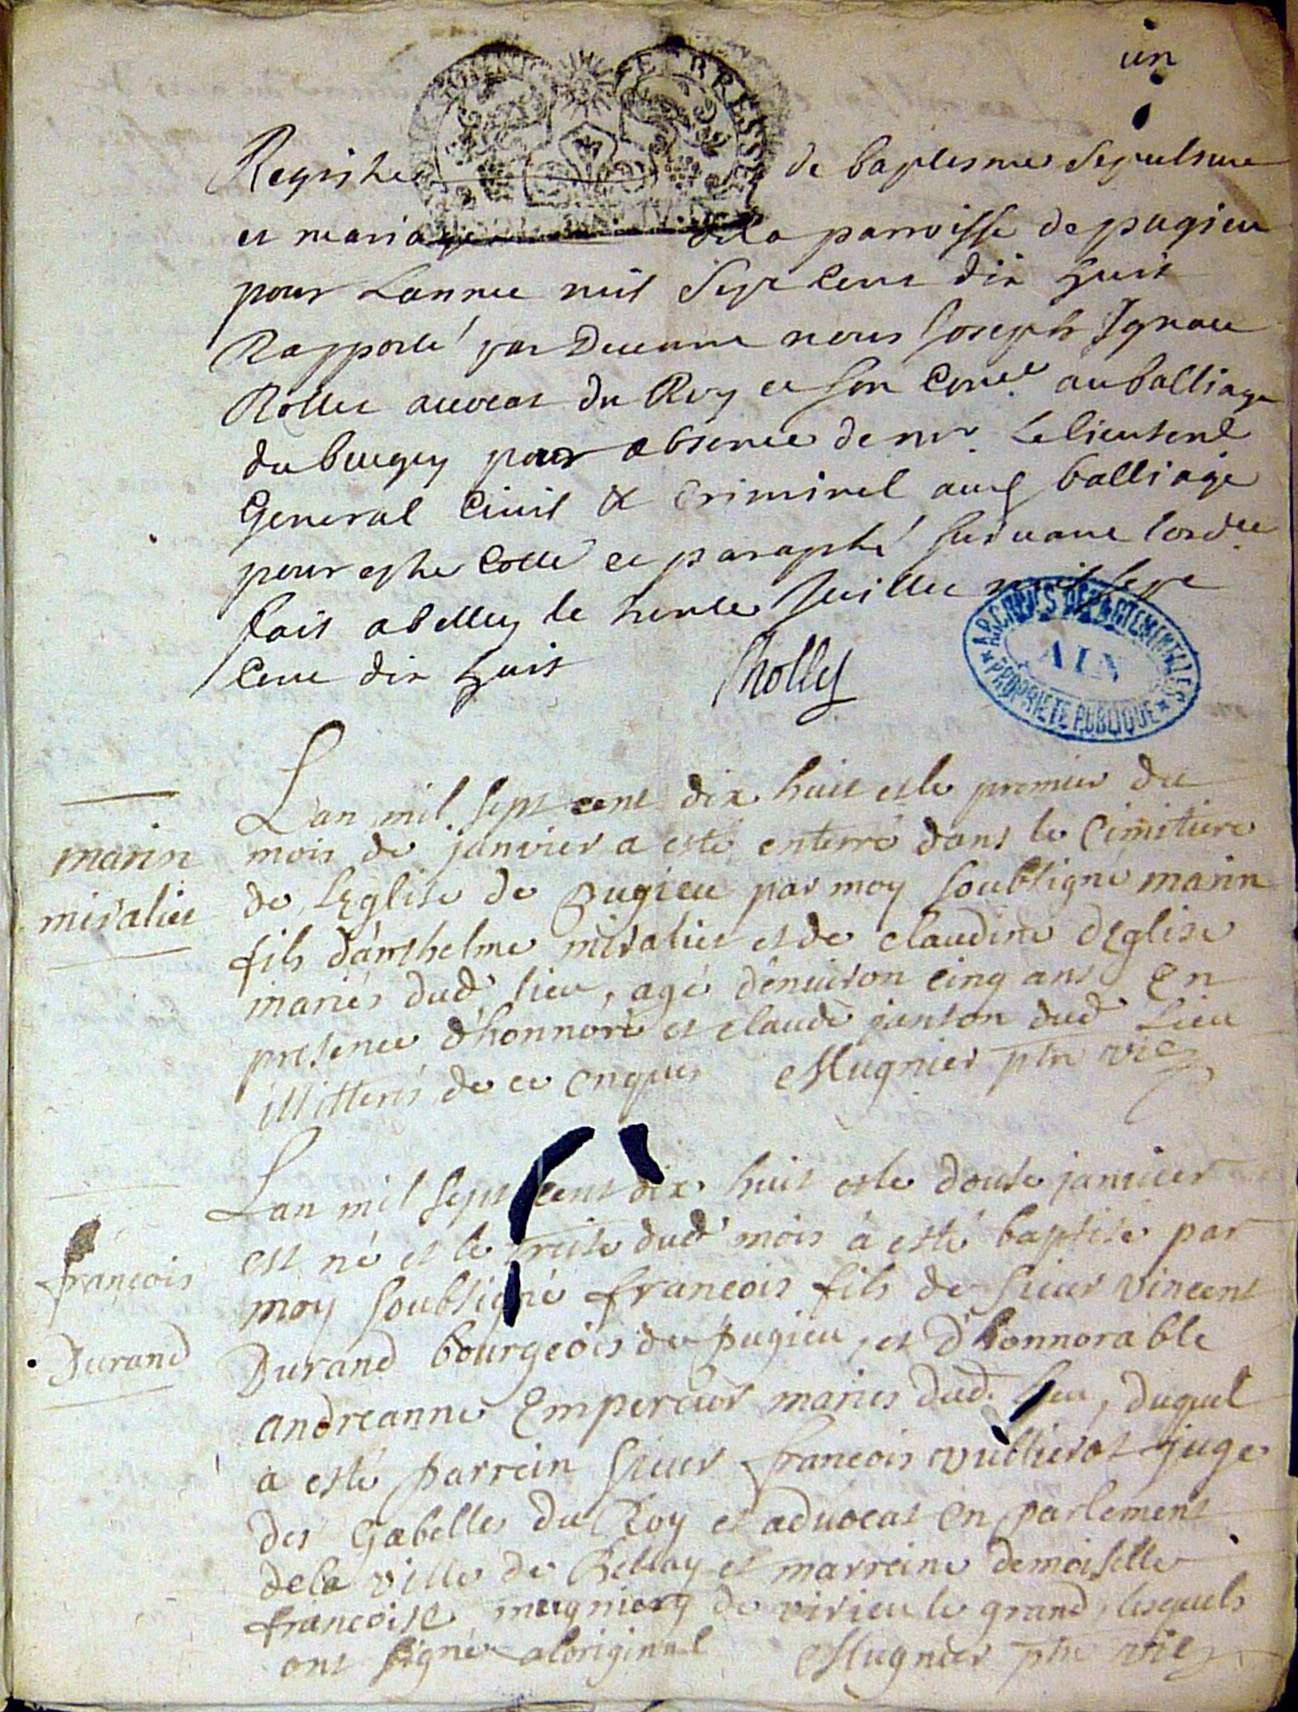 un
Registre de baptesme Sepulture
et mariage de la parroisse de pugieu
pour Lannee mil Sept Cent dix huit
Rapporté par Devant nous Joseph Ignace
Rollet avocat du Roy et son Con.er au balliage
du bugey pour absence de mr. Le lieutent
General Civil & Criminel aud balliage
pour estre Cotté et paraphé suivant lord.ce
fait a Belley le trente Juillet mil sept
Cent dix huit Rolley
ARCHIVES DEPARTEMENTALES
AIN
PROPRIETE PUBLIQUE
marin
miralier
Lan mil sept cent dix huit et le premier du
mois de janvier a esté enterré dans le Cimitiere
de l'Eglise de Pugieu par moy soubsigné marin
fils d'anthelme miralier et de claudine dEglise
mariés dud. lieu, agé d'environ cinq ans En
presence d'honnoré et claude janton dud Lieu
illitterés de ce enquis Mugnier ptre vic
françois
Durand
Lan mil sept cent dix huit et le douse janvier
est né et le treise dud mois à esté baptisé par
moy soubsigné françois fils de sieur vincent
Durand bourgeois de Pugieu, et d'honnorable
andreanne Empereur mariés dud. lieu, duquel
a esté parrein sieur françois vuillerot juge
des Gabelles du Roy et advocat en parlement
de la ville de Bellay et marreine demoiselle
françoise de virieu le grand, lesquels
ont signé a loriginal Mugnier ptre vic